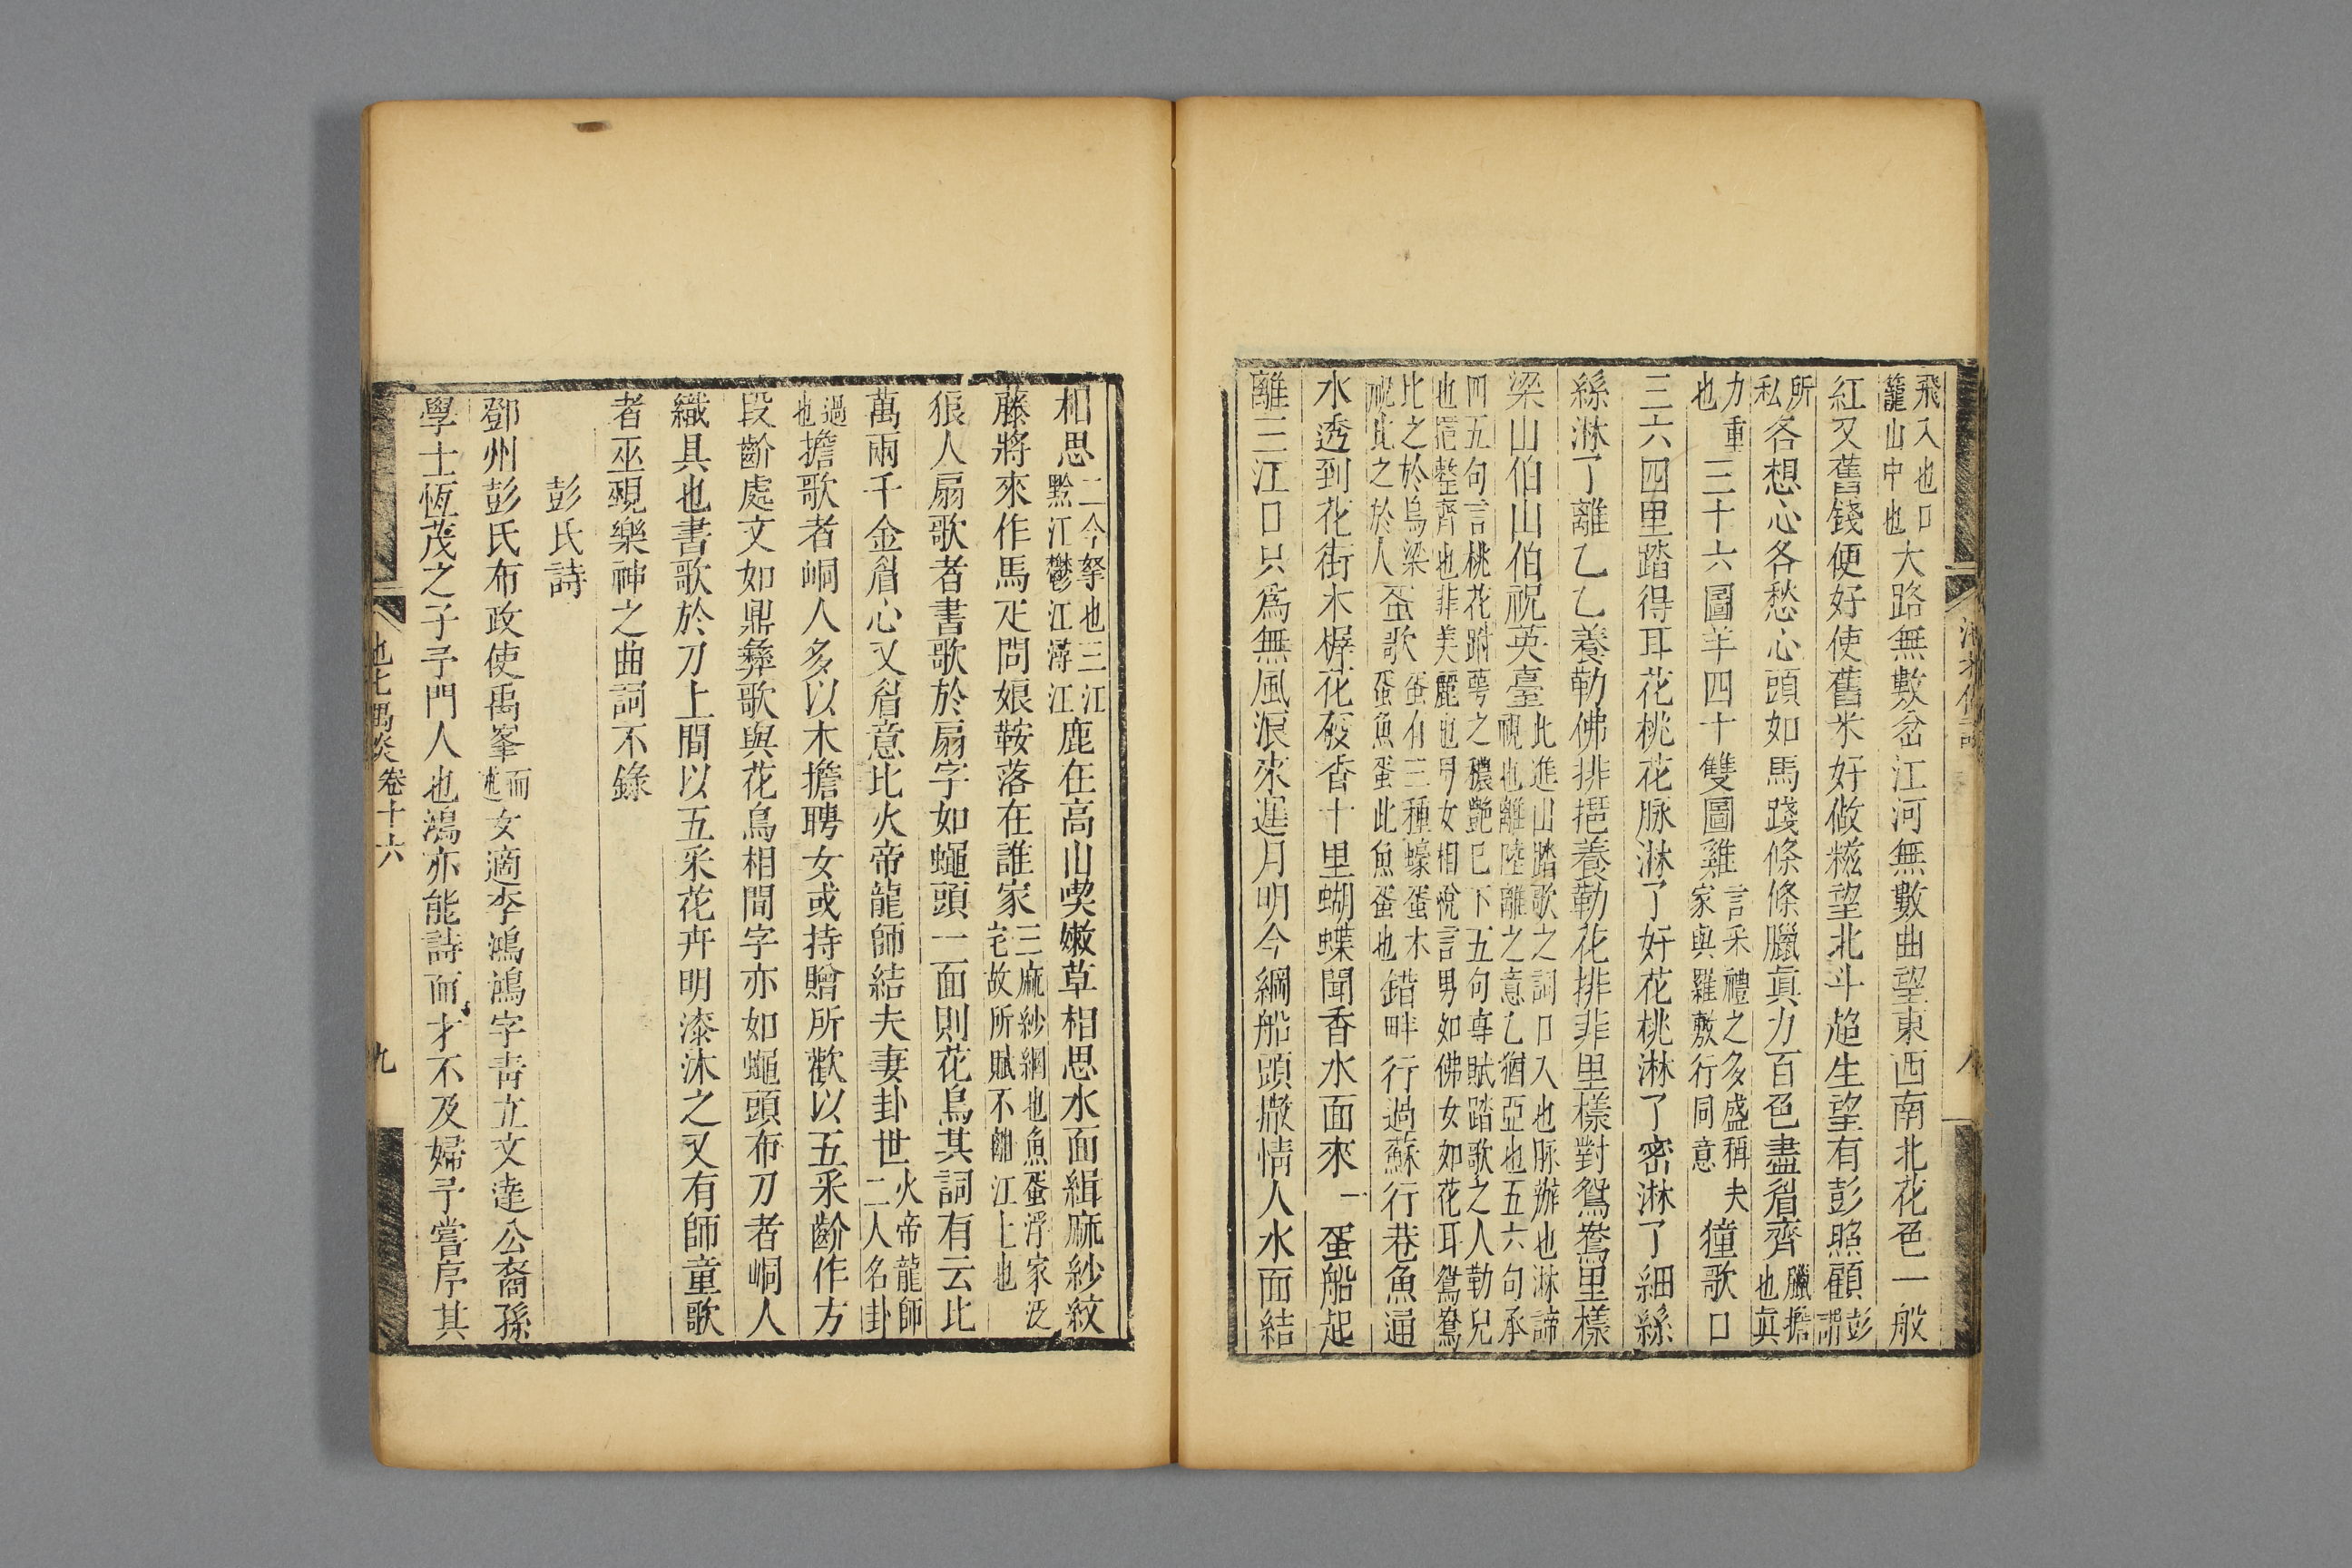 飛入也口
蘢山中也
大路無數岔江河無數曲望東西南北花色一般
紅又舊錢便好使舊米好做糍望北斗趙生望有彭照顧
彭
謂
所
私
各想心各愁心頭如馬踐條條臘眞力百色盡眉齊
臘擔
也眞
力重
也
三十六圖羊四十雙圖雞
言采禮之多盛稱夫
家與羅敷行同意
獞歌口
三六四里踏得耳花桃花脉淋了好花桃淋了密淋了細絲
絲淋了離乙乙養勒佛排挹養勒花排非里樣對鴛鴦里樣
梁山伯山伯祝英臺
此進山踏歌之詞口入也脉辦也淋諦
視也離陸離之意乙猶亞也五六句承
四五句言桃花跗萼之穠艷巳下五句專賦踏歌之人勒兒
也挹整齊也非美麗也男女相悅言男如佛女如花耳鴛鴦
比之於鳥梁
祝比之於人
蛋歌
蛋有三種蠔蛋木
蛋魚蛋此魚蛋也
錯畔行過蘇行巷魚通
水透到花街木樨花發香十里蝴蝶聞香水面來一蛋船起
離三江口只爲無風浪來遲月明今網船頭撒情人水面結
相思
二今拏也三江
黔江鬱江潯江
鹿在高山喫嫩草相思水面緝麻紗紋
藤將來作馬疋問娘鞍落在誰家
三麻紗網也魚蛋浮家泛
宅故所賦不離江上也
狼人扇歌者書歌於扇字如蠅頭一面則花鳥其詞有云比
萬兩千金眉心又眉意比火帝龍師結夫妻卦世
火帝龍師
二人名卦
過
也
擔歌者峒人多以木擔聘女或持贈所歡以五采齡作方
段齡處文如鼎彝歌與花鳥相間字亦如蠅頭布刀者峒人
織具也書歌於刀上間以五采花卉明漆沐之又有師童歌
者巫覡樂神之曲詞不錄
彭氏詩
鄧州彭氏布政使禹峯
而
述
女適李鴻鴻字青立文達公裔孫
學士恆茂之子予門人也鴻亦能詩而才不及婦予嘗序其
池北偶談
卷十六
九